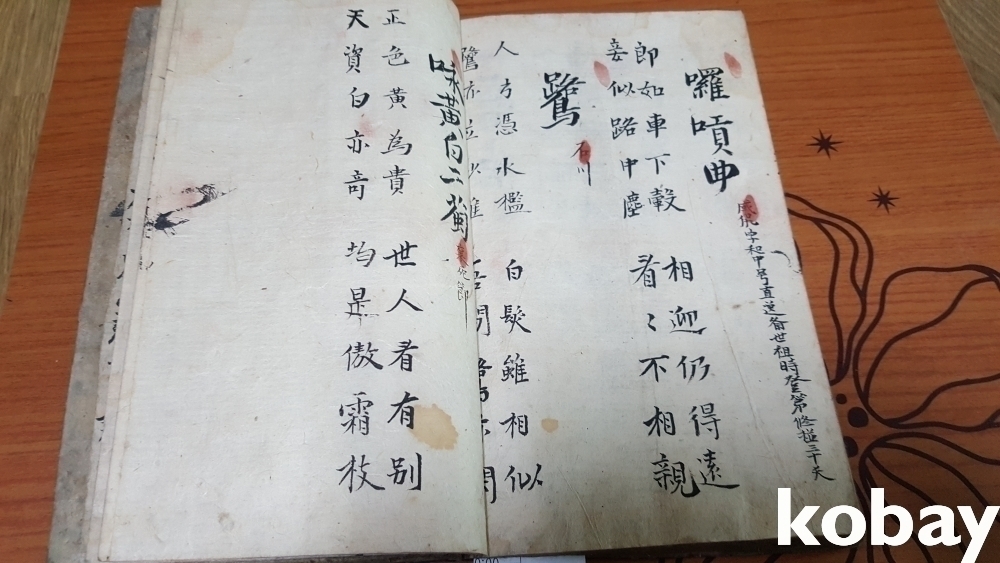 囉嗊曲
成侃字和 世祖時登第修撰三十夭
郎如車下轂
妾似路中塵
相迎仍得遠
看〻不相親
鷺
石川
人方憑水檻
鷺亦立沙灘
白髮雖相似
吾閒鷺不閒
咏黃白二菊
正色黃為貴
天資白亦奇
世人看有别
均是傲霜枝
kobay